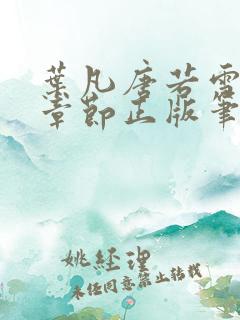 葉凡唐若雪
章節正版筆
姚经理
未经同意禁止转载